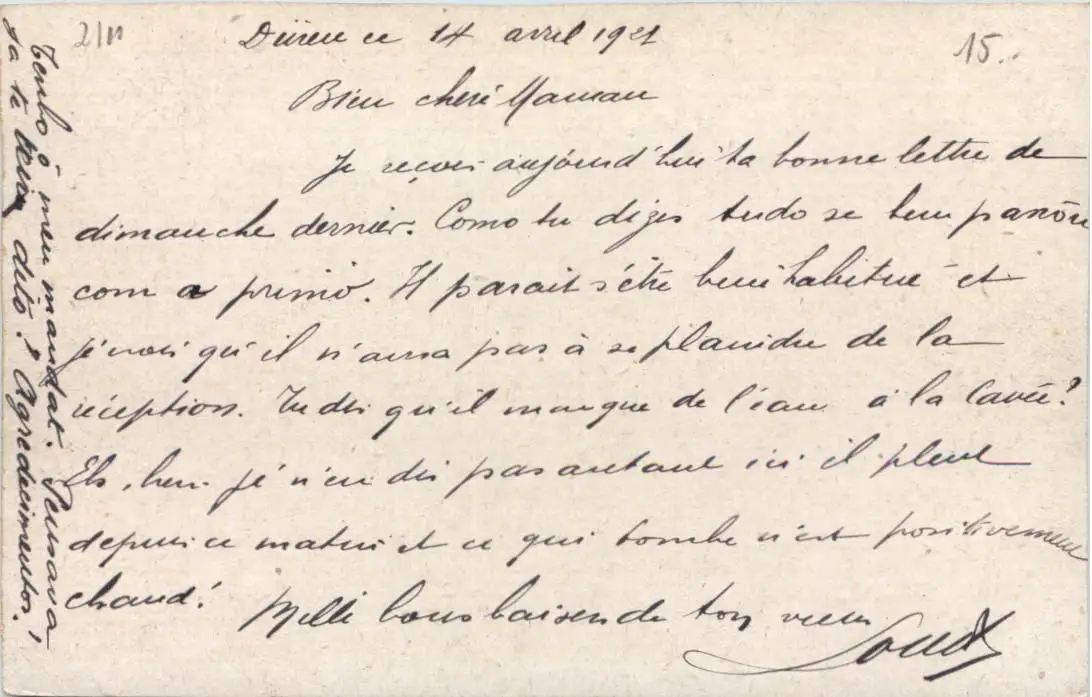 2/11
15.
Düren ce 14 avril 1921
Bien chère Maman
Je reçois aujourd'hui ta bonne lettre de
dimanche dernier. Como tu dizes tudo se tem
com o primo. Il parait s'être bien habitué et
je crois qu'il n'aura pas à se plaindre de la
réception. Tu dis qu'il manque de l'eau à la Cavée?
Eh bien je n'en dis pas autant ici il pleut
depuis ce matin et ce qui tombe n'est positivement
chaud!
Mille bons baisers de ton vieux
Tenho o meu mandat. Pensava
ja te dito! Agredecimentos!